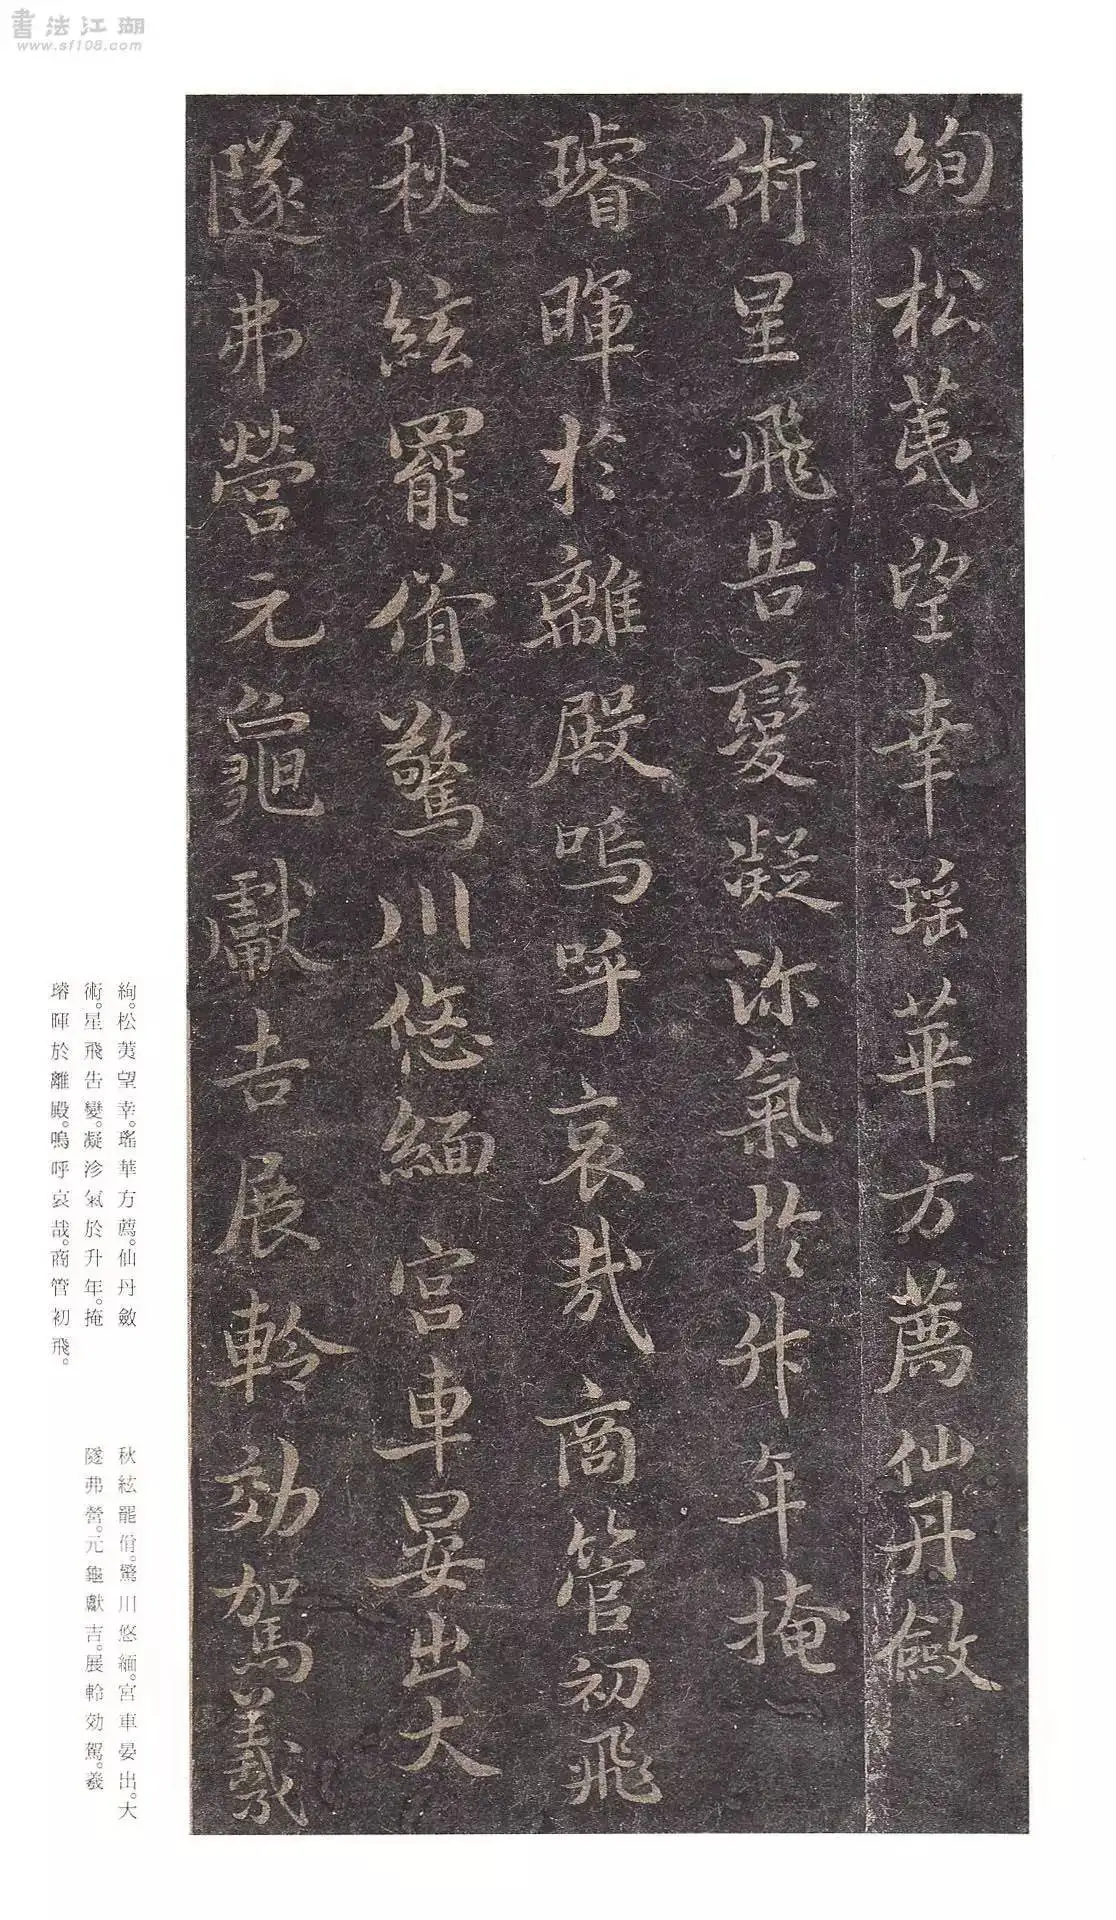 書法江湖
www.sf108.com
絢松荑望幸瑤華方薦仙丹斂
術星飛告變凝沴氣於升年掩
璿暉於離殿嗚呼哀哉商管初飛
秋絃罷傄驚川悠緬宮車晏出大
隧弗營元龜獻吉展軨効駕羲
絢。松荑望幸。瑤華方薦。仙丹斂
術。星飛告變。凝沴氣於升年。掩
璿暉於離殿。嗚呼哀哉。商管初飛。
秋絃罷傄。驚川悠緬。宮車晏出。大
隧弗營。元龜獻吉。展軨効駕。羲